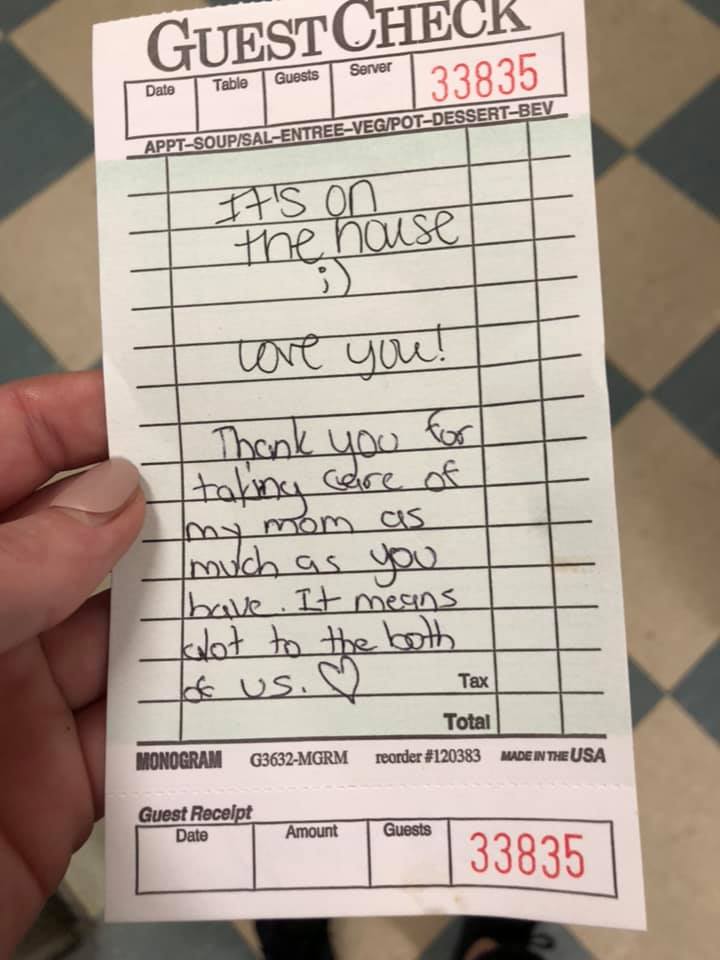 GUEST CHECK
Date Table Guests Server 33835
APPT–SOUP/SAL–ENTREE–VEG/POT–DESSERT–BEV
It's on
the house
;)
Love you!
Thank you for
taking care of
my mom as
much as you
have. It means
alot to the both
of us. ♡
Tax
Total
MONOGRAM G3632-MGRM reorder #120383 MADE IN THE USA
Guest Receipt
Date Amount Guests 33835